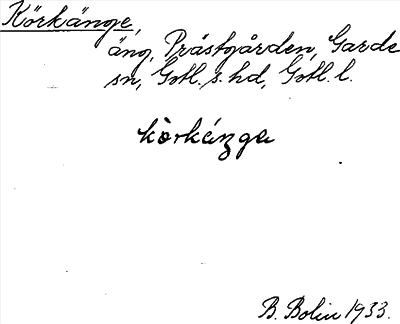 Körkänge,
äng, Prästgården, Garde
sn, Gotl. s. hd, Gotl. l.
kòrkánga
B. Bolin 1933.